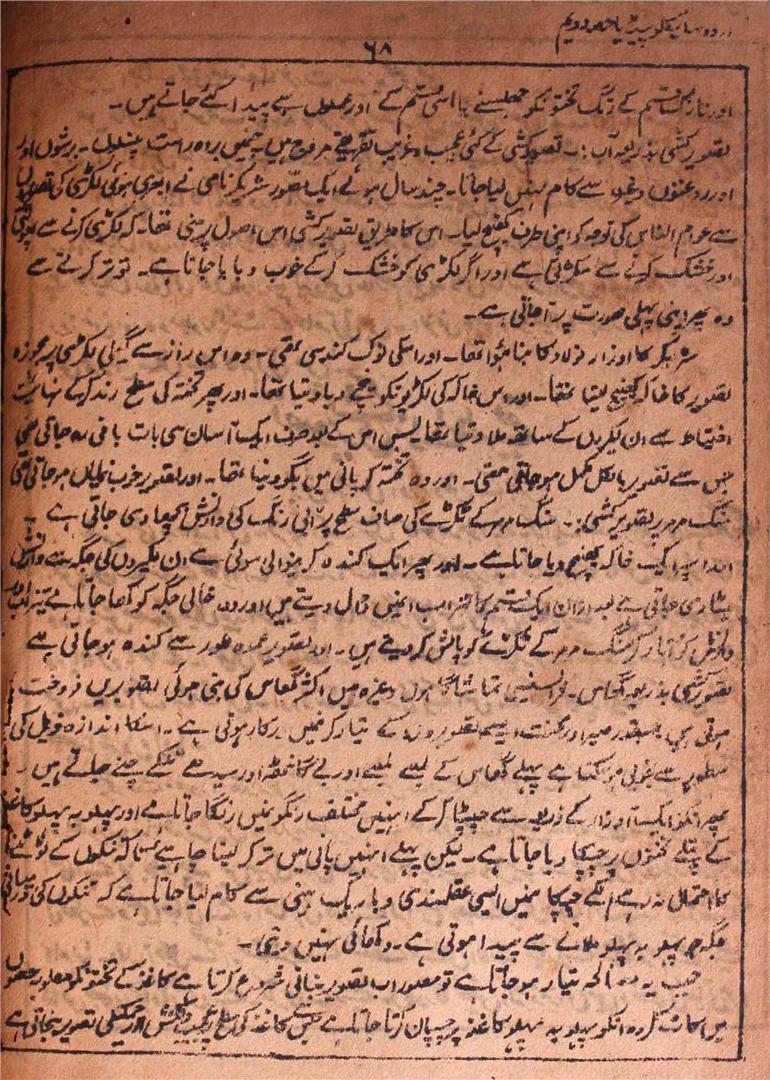 اردو سائیکلوپیڈیا حصہ دویم
۶۸
اور نازک قسم کے رنگ تختونکو جھلسنے یا اسی قسم کے اور عملوں سے پیدا کئے جاتے ہیں۔
تصویر کشی بذریعہ آب:۔ تصویر کشی کے کئی عجیب و غریب طریقے مروج ہیں۔ جنمیں براہ راست پنسلوں۔ برشوں اور
اور روغنوں وغیرہ سے کام نہیں لیا جاتا۔ چند سال ہوئے ایک مصور شریگر نامی نے ابھری ہوئی لکڑی کی تصویروں
سے عوام الناس کی توجہ کو اپنی طرف کھینچ لیا۔ اس کا طریق تصویر کشی اس اصول پر مبنی تھا۔ کہ لکڑی
اور خشک کرنے سے سکڑتی ہے اور اگر لکڑی کو خشک کرکے خوب دبایا جاتا ہے۔ تو تر کرنے سے
وہ پھر اپنی پہلی صورت پر آ جاتی ہے۔
شریگر کا اوزار فولاد کا بنا ہوا تھا۔ اور اسکی نوک کند سی تھی۔ وہ اس اوزار سے گیلی لکڑی پر مجوزہ
تصویر کا خاکہ کھینچ لیتا تھا۔ اور اس خاکہ کی لکیرونکو نیچے دبا دیتا تھا۔ اور پھر تختہ کی سطح رندہ کرکے نہایت
احتیاط سے ان لکیروں کے ساتھ ملا دیتا تھا بس اس کے بعد صرف ایک آسان سی بات باقی رہ جاتی تھی
جس سے تصویر بالکل مکمل ہو جاتی تھی۔ اور وہ تختہ کو پانی میں بھگو دیتا تھا۔ اور تصویر خوب نمایاں ہو جاتی تھی
سنگ مرمر پر تصویر کشی:۔ سنگ مرمر کے ٹکڑے کی صاف سطح پر رنگ کی وارنش بچھا دی جاتی ہے
اور اسپر ایک خاکہ کھینچ دیا جاتا ہے۔ اور پھر ایک کندہ کرنیوالی سوئی سے ان لکیروں کی جگہ سے وارنش
ہٹا دی جاتی ہے بعد ازاں ایک قسم کا تیزاب انمیں ڈال دیتے ہیں اور وہ خالی جگہ کو کھا جاتا ہے تیزاب اور
وارنش کو اتار کر سنگ مرمر کے ٹکڑے کو پالش کر دیتے ہیں۔ اور تصویر عمدہ طور سے کندہ ہو جاتی ہے
تصویر کشی بذریعہ گھاس۔ فرانسیسی تماشا گاہوں وغیرہ میں اکثر گھاس کی بنی ہوئی تصویریں فروخت
ہوتی ہیں جسقدر صبر اور محنت ایسی تصویروں کے تیار کرنیمیں درکار ہوتی ہے۔ اسکا اندازہ ذیل کی
سطور سے بخوبی ہو سکتا ہے پہلے گھاس کے لمبے لمبے اور بے گانٹھ اور سیدھے تنکے چنے جاتے ہیں۔
پھر انکو ایک اوزار کے ذریعہ سے چپٹا کرکے انہیں مختلف رنگونمیں رنگا جاتا ہے اور پہلو بہ پہلو کاغذ
کے پتلے تختوں پر چپکا دیا جاتا ہے۔ لیکن پہلے انہیں پانی میں تر کر لینا چاہئے تاکہ تنکوں کے ٹوٹنے
کا احتمال نہ رہے انکے چپکانیمیں ایسی عقلمندی و باریک بینی سے کام لیا جاتا ہے کہ تنکوں کی درمیانی
جگہ جو پہلو بہ پہلو ملانے سے پیدا ہوتی ہے۔ دکھائی نہیں دیتی۔
جب یہ مصالحہ تیار ہو جاتا ہے تو مصور اب تصویر بنانی شروع کرتا ہے کاغذ کے تختونکو مطلوبہ حصوں
میں کاٹ کر وہ انکو پہلو بہ پہلو کاغذ پر چسپان کرتا جاتا ہے کاغذ کی سطح پر دلکش اور چمکیلی تصویر بنجاتی ہے